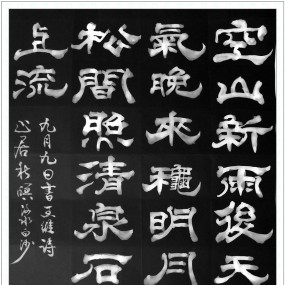 空山新雨後天
氣晚來穐明月
松間照清泉石
上流
九月九日書王維詩
山居秋暝